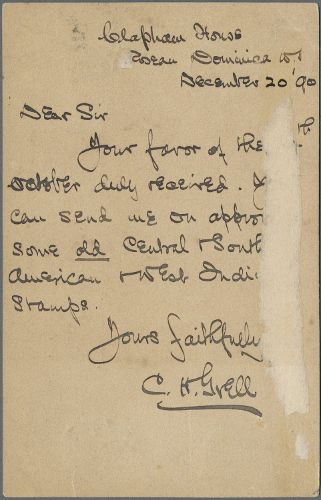 Clapham House
Roseau Dominica W.I
December 20 '90
Dear Sir
Your favor of the th
october duly received.
can send me on appro
some old Central & South
American & West Indi
Stamps.
Yours faithfully
C. H. Grell